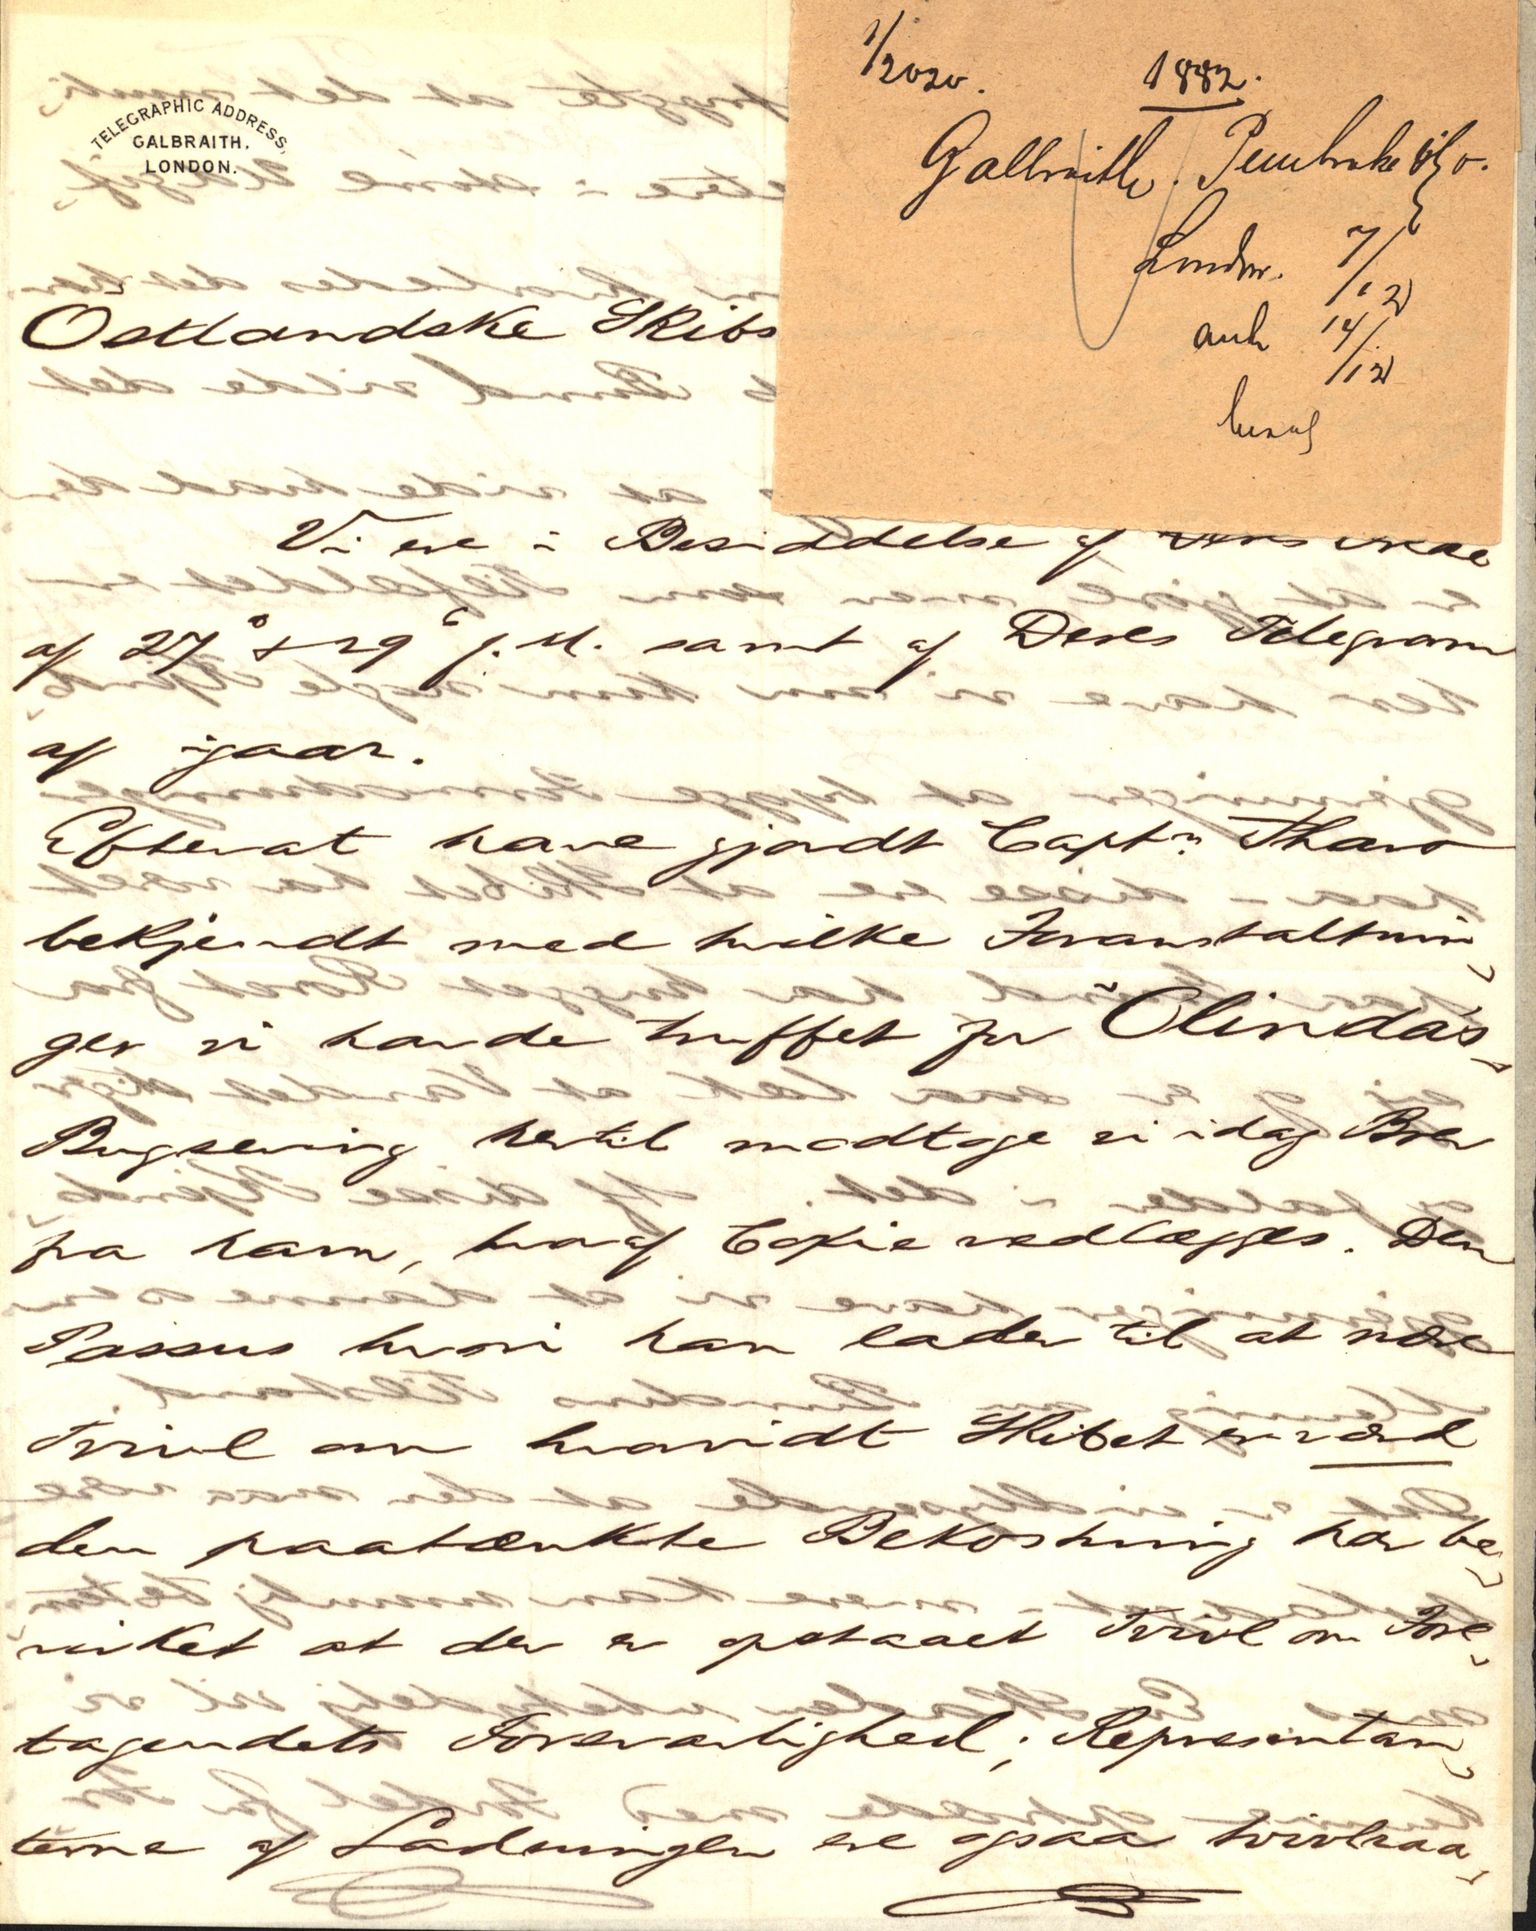 TELEGRAPHIC ADDRESS,
GALBRAITH,
LONDON.
1/2020. 1882.
Galbraith. Pembroke & Co.
London. 7/12
ank 14/12
besv
Östlandske Skibs
Vi ere i Besiddelse af
af 27' & 29' f. M. samt af Deres Telegram
af igaar.
Efterat have gjordt Capt:n Tharo
bekjendt med hvilke Foranstaltnin
ger vi havde truffet for "Olinda's
Bugsering hertil modtoge vi idag Brev
fra ham, hvoraf Copie vedlægges. Den
Passus hvori han lader til at være
Tvivl om hvorvidt Skibet er værd
den paatænkte Bekostning har be
virket at der er opstaaet Tvivl om Fore
tagendets Forsvarlighed; Representan
terne af Ladningen ere ogsaa tvivlraa